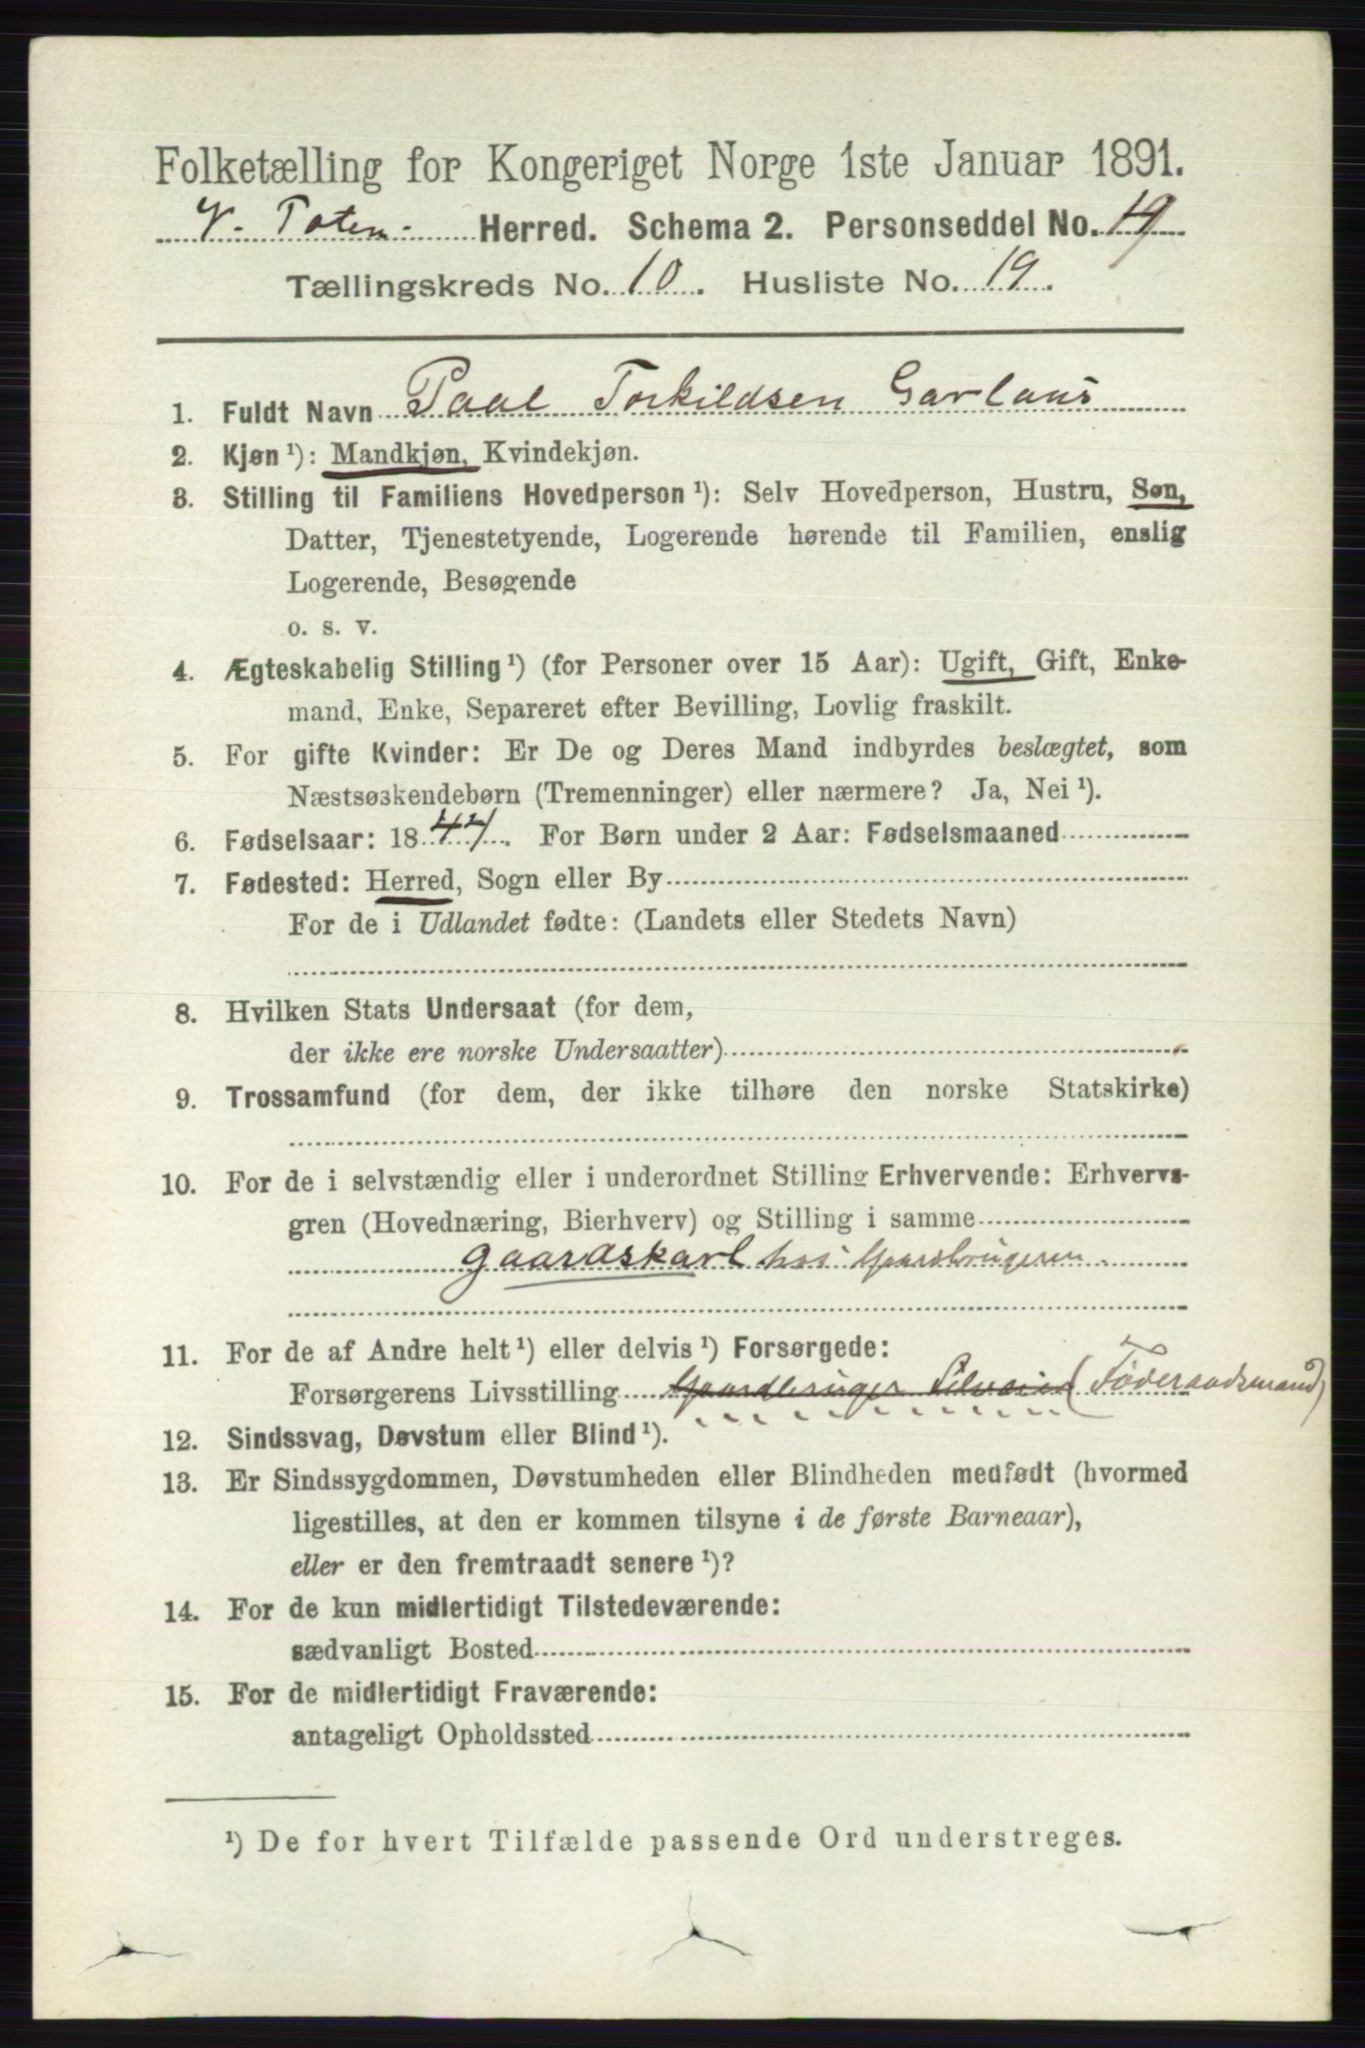 Folketælling for Kongeriget Norge 1ste Januar 1891.
V. Toten. Herred. Schema 2. Personseddel No. 19
Tællingskreds No. 10. Husliste No. 19.
1. Fuldt Navn Paal Torkildsen Garlaus
2. Kjøn ¹): Mandkjøn, Kvindekjøn.
3. Stilling til Familiens Hovedperson ¹): Selv Hovedperson, Hustru, Søn,
Datter, Tjenestetyende, Logerende hørende til Familien, enslig
Logerende, Besøgende
o. s. v.
4. Ægteskabelig Stilling ¹) (for Personer over 15 Aar): Ugift, Gift, Enke-
mand, Enke, Separeret efter Bevilling, Lovlig fraskilt.
5. For gifte Kvinder: Er De og Deres Mand indbyrdes beslægtet, som
Næstsøskendebørn (Tremenninger) eller nærmere? Ja, Nei ¹).
6. Fødselsaar: 1844. For Børn under 2 Aar: Fødselsmaaned
7. Fødested: Herred, Sogn eller By
For de i Udlandet fødte: (Landets eller Stedets Navn)
8. Hvilken Stats Undersaat (for dem,
der ikke ere norske Undersaatter)
9. Trossamfund (for dem, der ikke tilhøre den norske Statskirke)
10. For de i selvstændig eller i underordnet Stilling Erhvervende: Erhvervs-
gren (Hovednæring, Bierhverv) og Stilling i samme
gaardskarl hos Gaardbrugeren.
11. For de af Andre helt ¹) eller delvis ¹) Forsørgede:
Forsørgerens Livsstilling Gaardbruger Selveier (Føderaadsmand)
12. Sindssvag, Døvstum eller Blind ¹).
13. Er Sindssygdommen, Døvstumheden eller Blindheden medfødt (hvormed
ligestilles, at den er kommen tilsyne i de første Barneaar),
eller er den fremtraadt senere ¹)?
14. For de kun midlertidigt Tilstedeværende:
sædvanligt Bosted
15. For de midlertidigt Fraværende:
antageligt Opholdssted
¹) De for hvert Tilfælde passende Ord understreges.